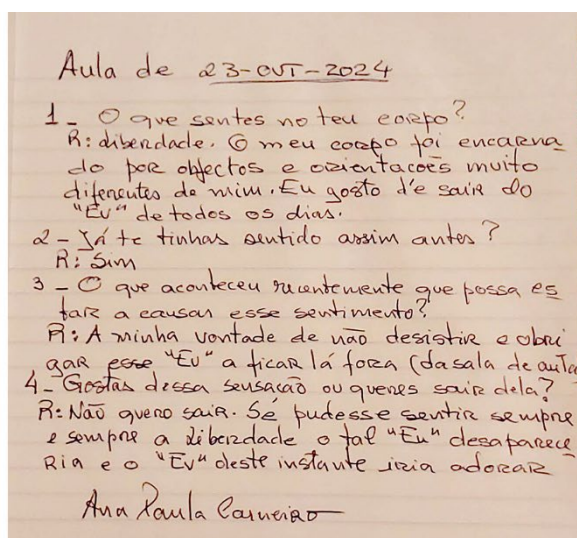 Aula de 23-OUT-2024
1- O que sentes no teu corpo?
R: Liberdade. O meu corpo foi encarna
do por objectos e orientacoēs muito
diferentes de mim. Eu gosto d'e sair do
"Eu" de todos os dias.
2- Já te tinhas sentido assim antes?
R: Sim
3- O que aconteceu recentemente que possa es
tar a causar esse sentimento?
R: A minha vontade de não desistir e obri
gar esse "Eu" a ficar lá fora (da sala de aula
4- Gostas dessa sensacão ou queres sair dela?
R: Não quero sair. Se pudesse sentir sempre
e sempre a liberdade o tal "Eu" desaparece
Ria e o "Eu" deste instante iria adorar
Ana Paula Carneiro